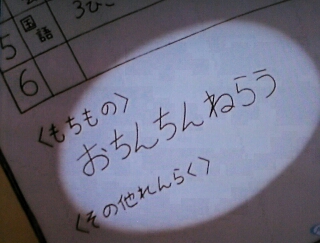 3ひこ
5 国語
6
<もちもの>
おちんちんねらう
<その他れんらく>